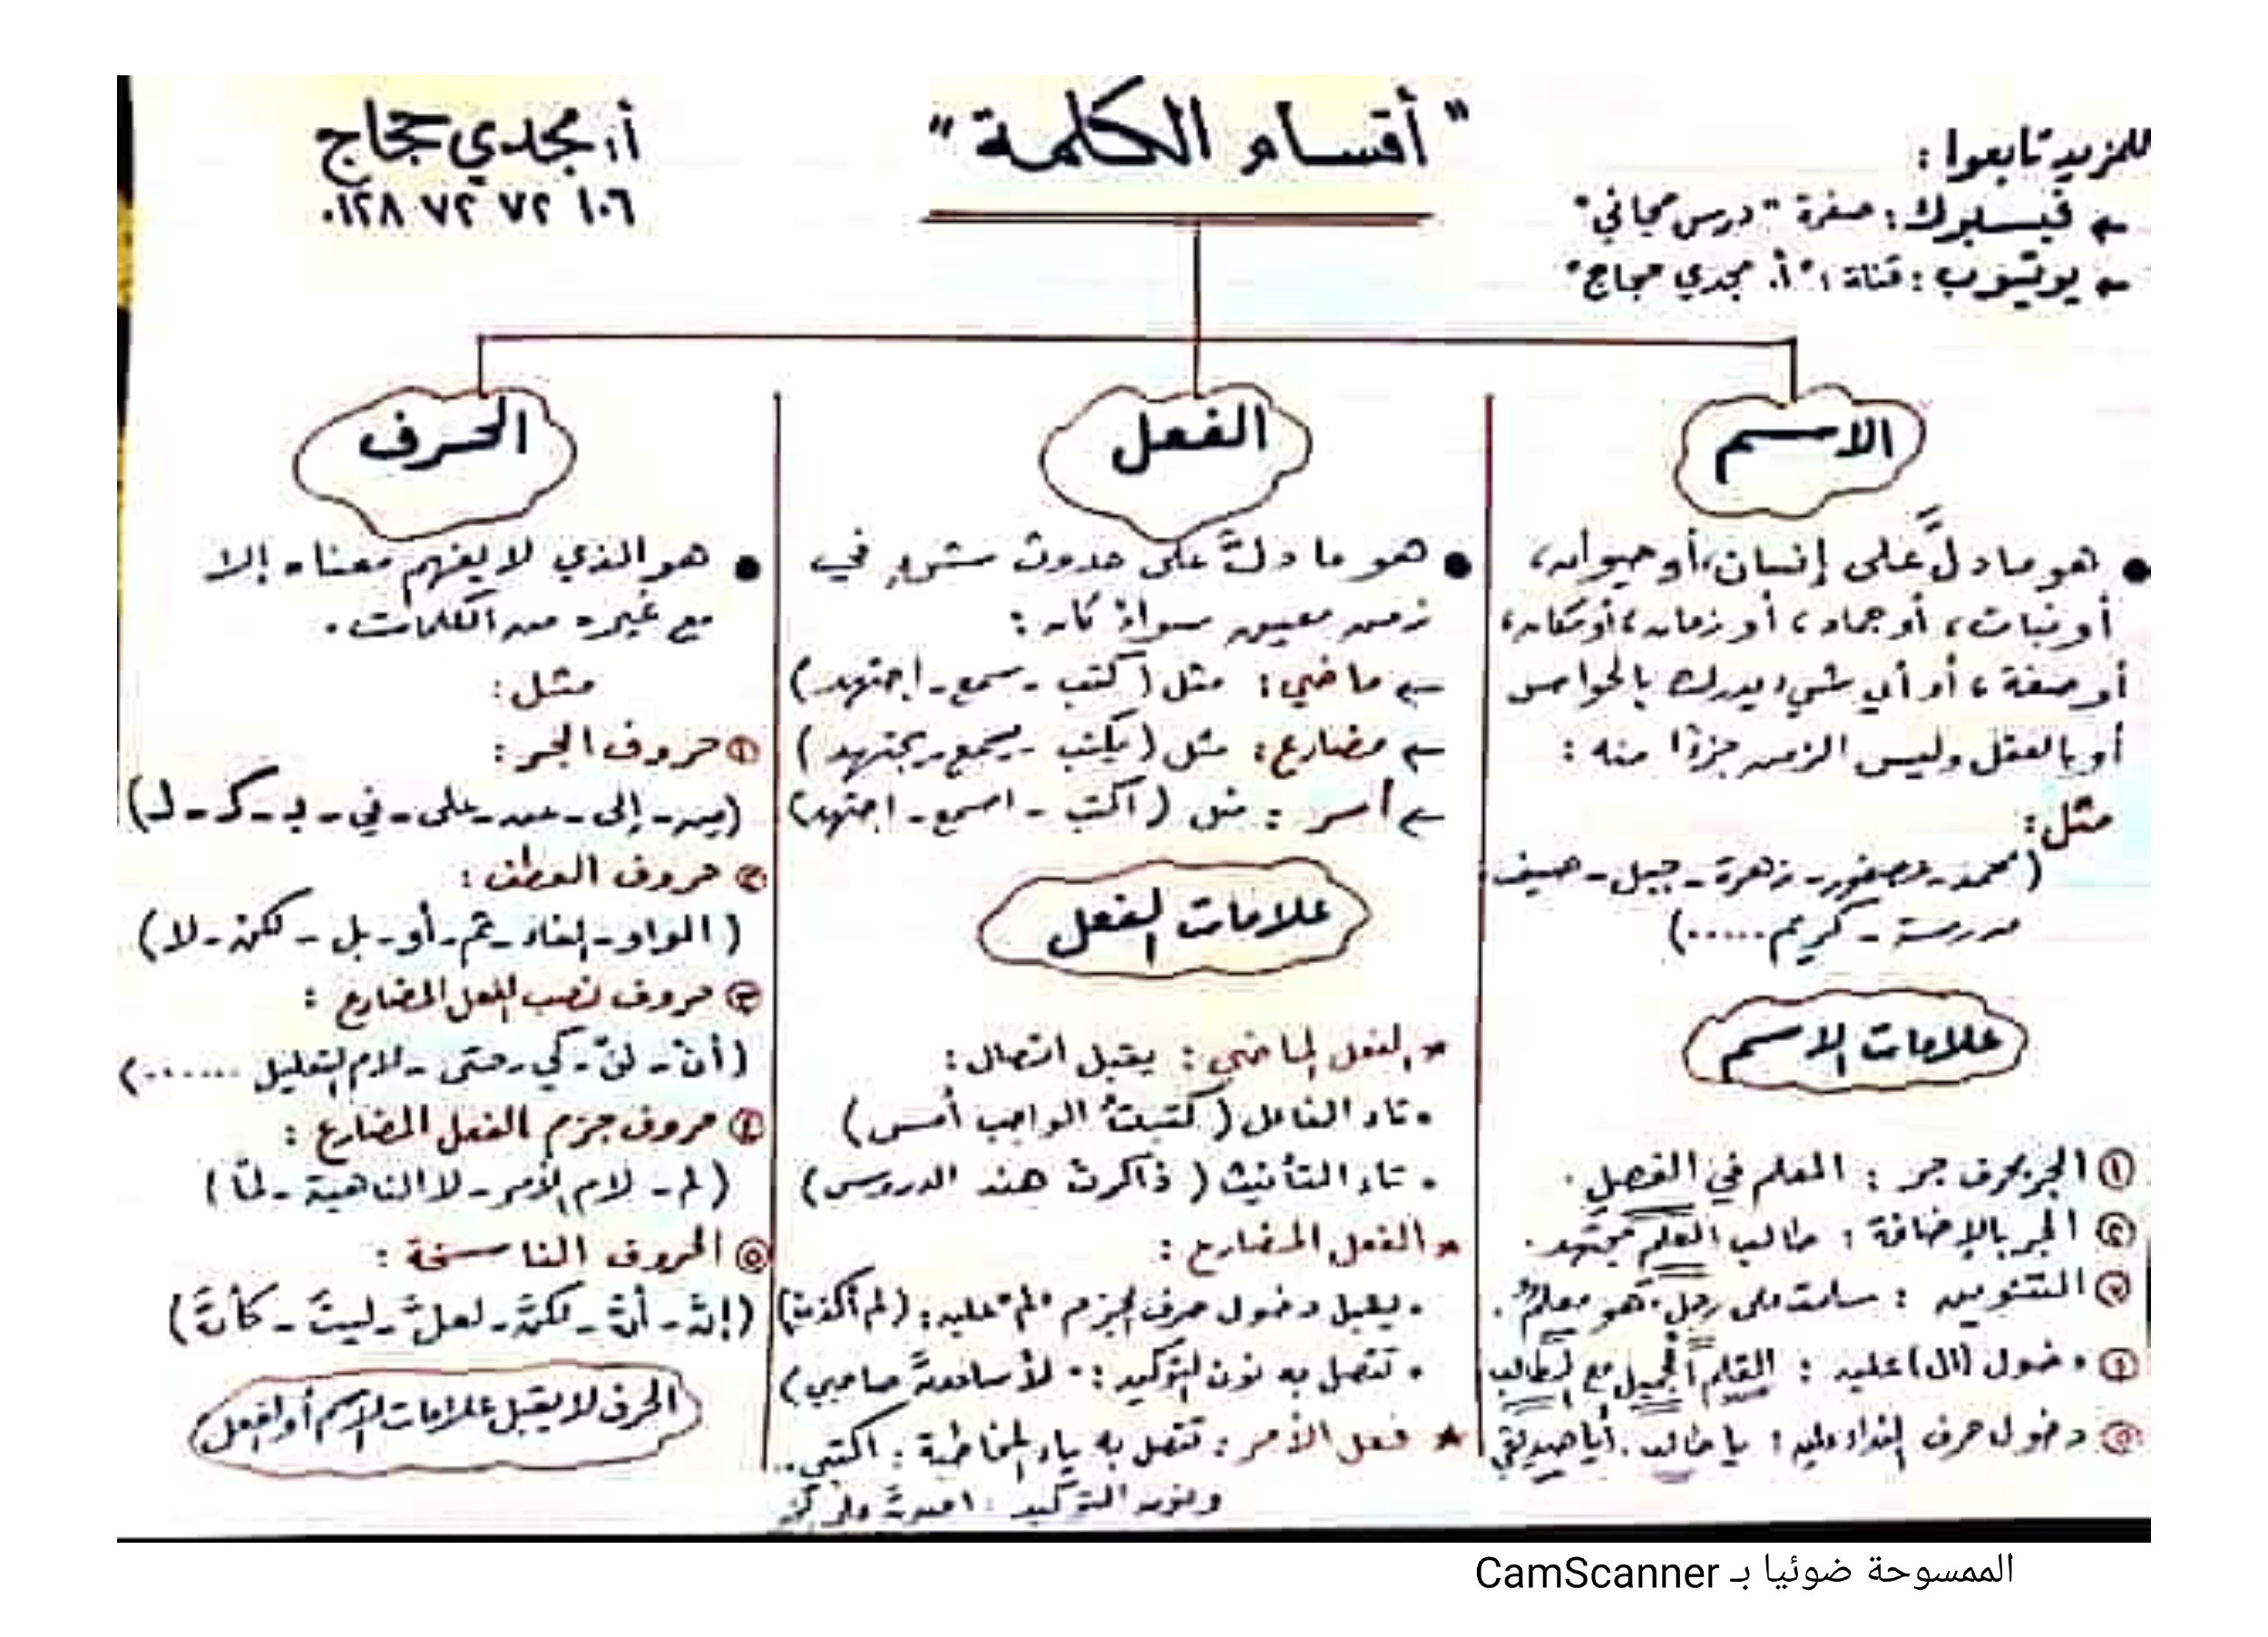 " أقسام الكلمة "
أ. مجدي حجاج
٠١٢٨ ٧٢ ٧٢ ١٠٦
للمزيد تابعوا :
← فيسبوك : صفحة " درس مجاني "
← يوتيوب : قناة : " أ. مجدي حجاج "
الاسم
● هو ما دلَّ على إنسان، أو حيوان،
أو نبات، أو جماد، أو زمان، أو مكان،
أو صفة، أو أي شيء يدرك بالحواس
أو بالعقل وليس الزمن جزءًا منه :
مثل :
(محمد - عصفور - زهرة - جبل - صيف
مدرسة - كريم .....)
علامات الاسم
① الجر بحرف جر : المعلم في الفصل .
② الجر بالإضافة : طالب العلم مجتهد .
③ التنوين : سلمت على رجلٍ . هو معلمٌ .
④ دخول (ال) عليه : القلم الجميل مع الطالب
⑤ دخول حرف النداء عليه : يا طالب . أيا صديقي
الفعل
● هو ما دلَّ على حدوث شيء في
زمن معين سواءً كان :
← ماضي : مثل (كتب - سمع - اجتهد)
← مضارع : مثل (يكتب - يسمع - يجتهد)
← أمر : مثل (اكتب - اسمع - اجتهد)
علامات الفعل
* الفعل الماضي : يقبل اتصال :
• تاء الفاعل (كتبتُ الواجب أمس)
• تاء التأنيث (ذاكرتْ هند الدروس)
* الفعل المضارع :
• يقبل دخول حرف الجزم "لم" عليه : (لم أكذبْ)
• تتصل به نون التوكيد : (لأساعدنَّ صاحبي)
★ فعل الأمر : تتصل به ياء المخاطبة : اكتبي ..
ونون التوكيد :
الحرف
● هو الذي لا يفهم معناه إلا
مع غيره من الكلمات .
مثل :
① حروف الجر :
(من - إلى - عن - على - في - بـ - كـ - لـ)
② حروف العطف :
(الواو - الفاء - ثم - أو - بل - لكنْ - لا)
③ حروف نصب الفعل المضارع :
(أنْ - لنْ - كي - حتى - لام التعليل ......)
④ حروف جزم الفعل المضارع :
(لم - لام الأمر - لا الناهية - لمّا)
⑤ الحروف الناسخة :
(إنَّ - أنَّ - لكنَّ - لعلَّ - ليتَ - كأنَّ)
الحرف لا يقبل علامات الاسم أو الفعل
الممسوحة ضوئيا بـ CamScanner